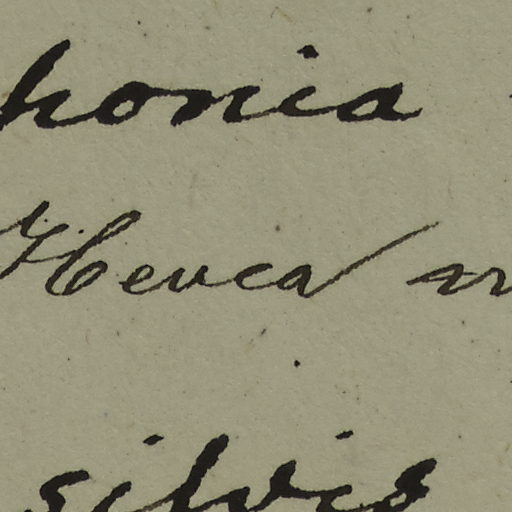 honia
Hevea
silvis